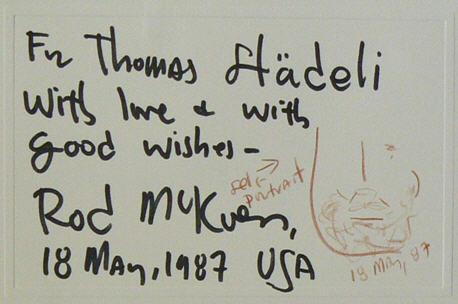 For Thomas Städeli
With love & with
Good wishes -
Rod McKuen,
18 May, 1987 USA
self-
portrait
18 May, 87